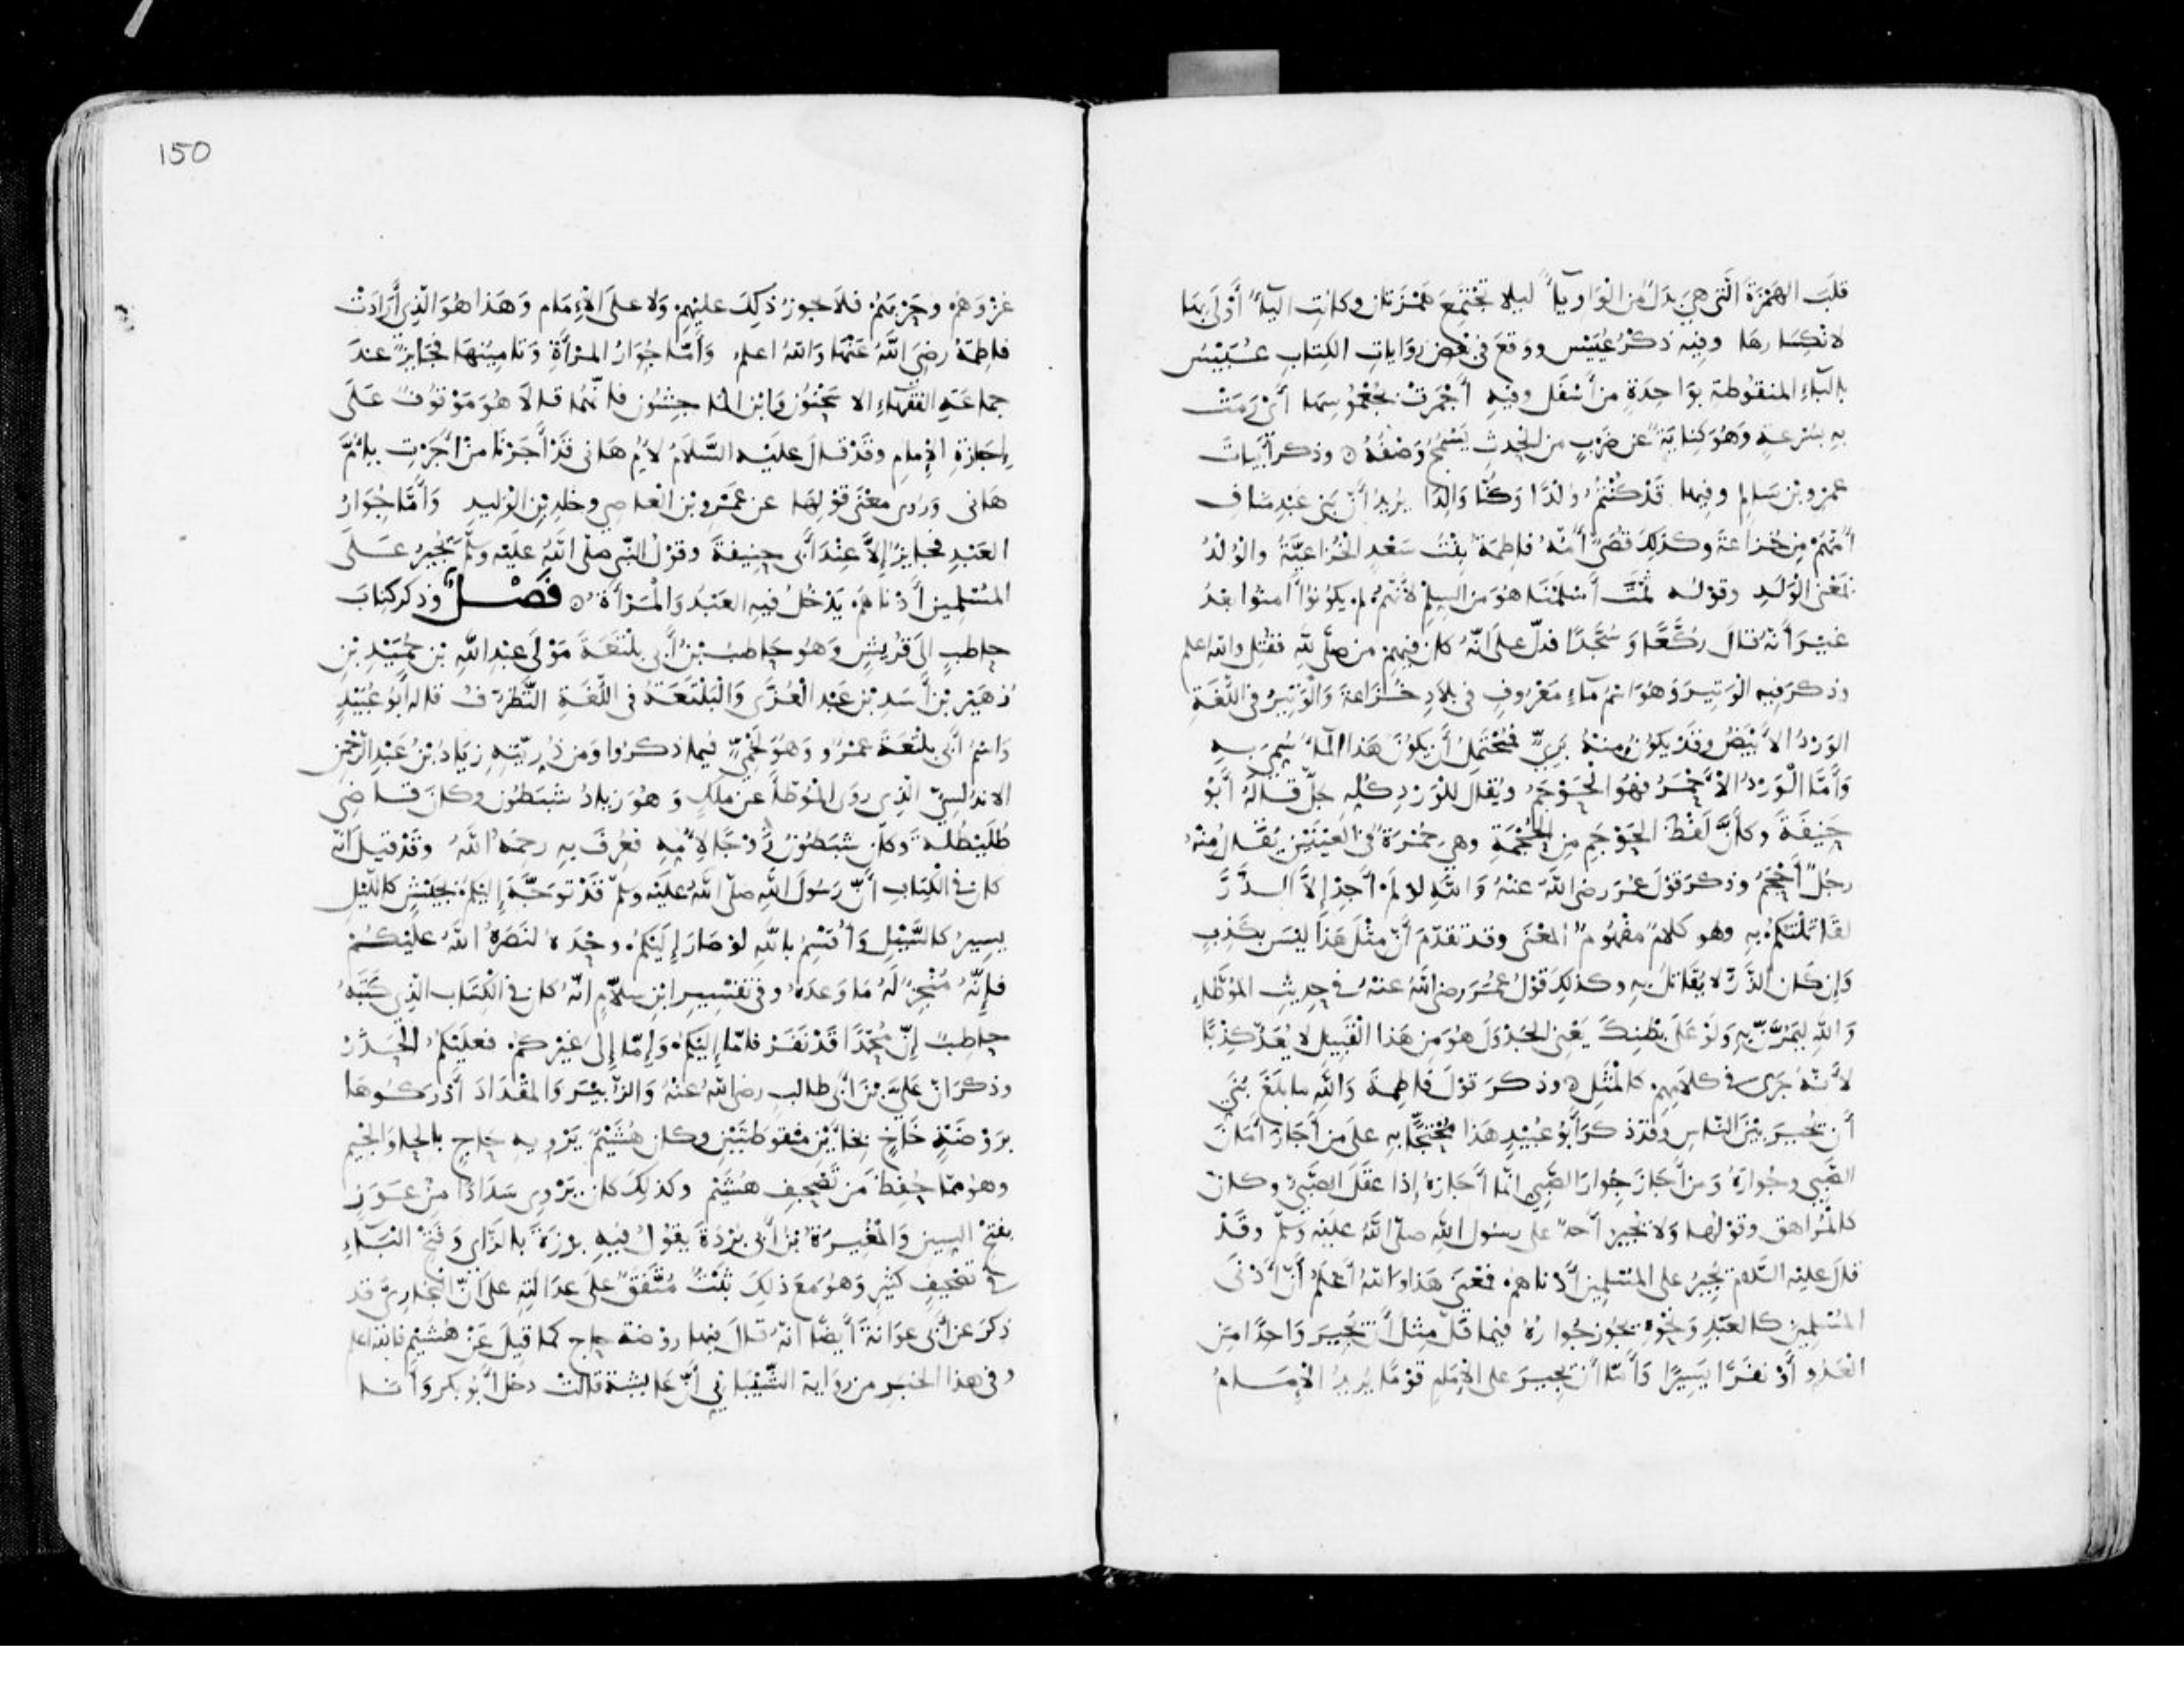 قلبَ الهمزةَ الَّتي هي بدل من الواو ياءً ليلا تجتمع همزتان وكانت الياءُ أولى بها
لانكسارها وفيه ذكر عُيَيْس ووقع في بعض روايات الكتاب عُبَيْس
بالباء المنقوطة بواحدة من أسفل وفيه أجمرت بجعموسها أي رمت
به بسرعة وهو كناية عن ضرب من الحدث يسمج وصفه وذكر أبيات
عمرو بن سالم وفيها قد كنتم ولدًا وكنا والدا يريد أن بني عبد مناف
أمهم من خزاعة وكذلك قصي أمه فاطمة بنت سعد الخزاعية والولد
بمعنى الولد وقوله ثمت أسلمنا هو من السلم لأنهم لم يكونوا آمنوا بعد
غير أنه قال ركعا وسجدا فدل على أنه كان فيهم من صلى لله فقتل والله اعلم
وذكر فيه الوتير وهو اسم ماء معروف في بلاد خزاعة والوتير في اللغة
الورد الأبيض وقد يكون منه بري فيحتمل أن يكون هذا الماء سمي به
وأما الورد الأحمر فهو الحوجم ويقال للورد كله جل قاله أبو
حنيفة وكأن لفظ الحوجم من الحجمة وهي حمرة في العينين يقال منه
رجل أحجم وذكر قول عمر رضي الله عنه والله لو لم أجد إلا الذر
لقاتلتكم به وهو كلام مفهوم المعنى وقد تقدم أن مثل هذا ليس بكذب
وإن كان الذر لا يقاتل به وكذلك قول عمر رضي الله عنه في حديث الموطأ
والله ليمرن به ولو على بطنك يعني الجدول هو من هذا القبيل لا يعد كذبا
لأنه جرى في كلامهم كالمثل وذكر قول فاطمة والله ما بلغ بني
أن يجير بين الناس وقد ذكر أبو عبيد هذا محتجا به على من أجاز أمان
الصبي وجواره ومن أجاز جوار الصبي انما أجازه إذا عقل الصبي وكان
كالمراهق وقولها ولا يجير أحد على رسول الله صلى الله عليه وسلم وقد
قال عليه السلام يجير على المسلمين أدناهم فمعنى هذا والله أعلم أن أدنى
المسلمين كالعبد ونحوه يجوز جواره فيما قل مثل أن يجير واحدا من
العدو أو نفرا يسيرا وأما أن يجير على الإمام قوما يريد الإمام
150
غزوهم وحربهم فلا يجوز ذلك عليهم ولا على الإمام وهذا هو الذي أرادت
فاطمة رضي الله عنها والله اعلم وأما جوار المرأة وتامينها فجايز عند
جماعة الفقهاء الا سحنون وابن الماجشون فانهما قالا هو موقوف على
إجازة الإمام وقد قال عليه السلام لأم هاني قد أجرنا من أجرت يا أم
هاني وروى معنى قولها عن عمرو بن العاصي وخلد بن الوليد وأما جوار
العبد فجايز إلا عند أبي حنيفة وقول النبي صلى الله عليه وسلم يجير على
المسلمين أدناهم يدخل فيه العبد والمرأة فصل وذكر كتاب
حاطب الى قريش وهو حاطب بن أبي بلتعة مولى عبد الله بن حميد بن
زهير بن أسد بن عبد العزى والبلتعة في اللغة التظرف قاله أبو عبيد
واسم أبي بلتعة عمرو وهو لخمي فيما ذكروا ومن ذريته زياد بن عبد الرحمن
الاندلسي الذي روى الموطأ عن ملك وهو زياد شبطون وكان قاضي
طليطلة وكان شبطون زوجا لأمه فعرف به رحمه الله وقد قيل انه
كان في الكتاب أن رسول الله صلى الله عليه وسلم قد توجه إليكم بجيش كالليل
يسير كالسيل وأقسم بالله لو صار إليكم وحده لنصره الله عليكم
فإنه منجز له ما وعده وفي تفسير ابن سلام انه كان في الكتاب الذي كتبه
حاطب إن محمدا قد نفر فاما إليكم وإما إلى غيركم فعليكم الحذر
وذكر ان علي بن أبي طالب رضي الله عنه والزبير والمقداد أدركوها
بروضة خاخ بخاءين منقوطتين وكان هشيم يرويه حاج بالحاء والجيم
وهو مما حفظ من تصحيف هشيم وكذلك كان يروي سدادا من عوز
بفتح السين والمغيرة بن أبي بردة يقول فيه برزة بالزاي وفتح الباء
في تصحيف كثير وهو مع ذلك ثبت متفق على عدالته على أن البخاري قد
ذكر عن أبي عوانة أيضا انه قال فيها روضة حاج كما قيل عن هشيم فالله اعلم
وفي هذا الخبر من رواية الشيباني أن عايشة قالت دخل أبو بكر وأنا